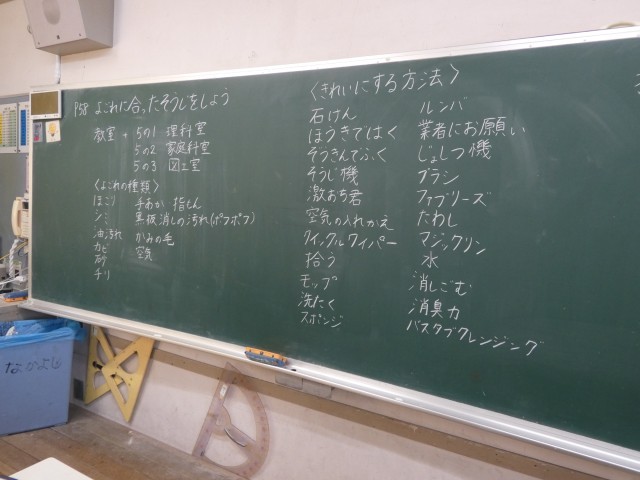 P58 よごれに合ったそうじをしよう
教室 + 5の1 理科室
5の2 家庭科室
5の3 図工室
〈よごれの種類〉
ほこり 手あか 指もん
シミ 黒板消しの汚れ(ポフポフ)
油汚れ かみの毛
カビ 空気
砂
チリ
〈きれいにする方法〉
石けん
ほうきではく
ぞうきんでふく
そうじ機
激おち君
空気の入れかえ
クイックルワイパー
拾う
モップ
洗たく
スポンジ
ルンバ
業者にお願い
じょしつ機
ブラシ
ファブリーズ
たわし
マジックリン
水
消しごむ
消臭力
バスタブクレンジング
なかよし